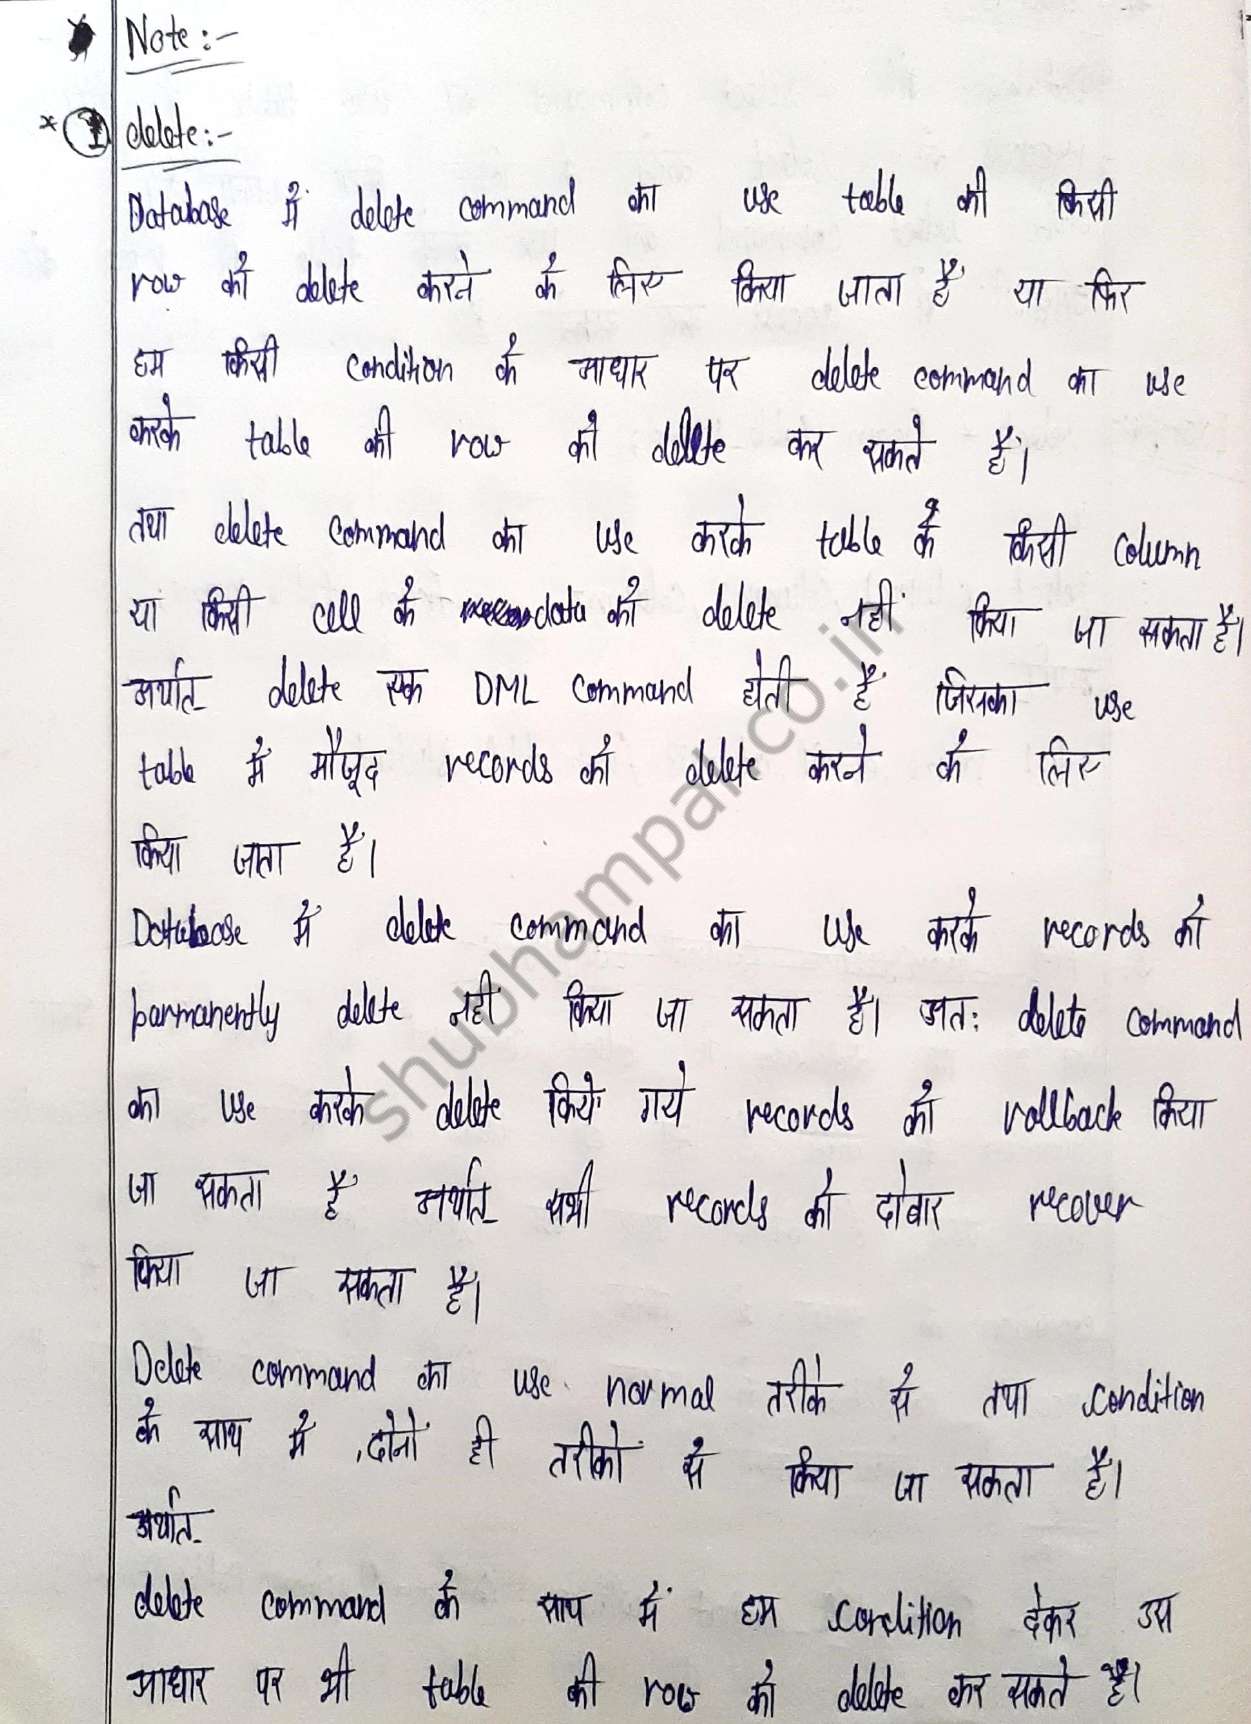 Note:-
* 1 delete:-
Database में delete command का use table की किसी
row को delete करने के लिए किया जाता है या फिर
हम किसी condition के आधार पर delete command का use
करके table की row को delete कर सकते है।
तथा delete command का use करके table के किसी column
या किसी cell के data को delete नहीं किया जा सकता है।
अर्थात delete एक DML command होती है जिसका use
table में मौजूद records को delete करने के लिए
किया जाता है।
Database में delete command का use करके records को
parmanently delete नही किया जा सकता है। अतः delete command
का use करके delete किये गये records को rollback किया
जा सकता है अर्थात सभी records को दोबार recover
किया जा सकता है।
Delete command का use normal तरीके से तथा condition
के साथ में, दोनों ही तरीकों से किया जा सकता है।
अर्थात
delete command के साथ में हम condition देकर उस
आधार पर भी table की row को delete कर सकते है।
shubhampal.co.in